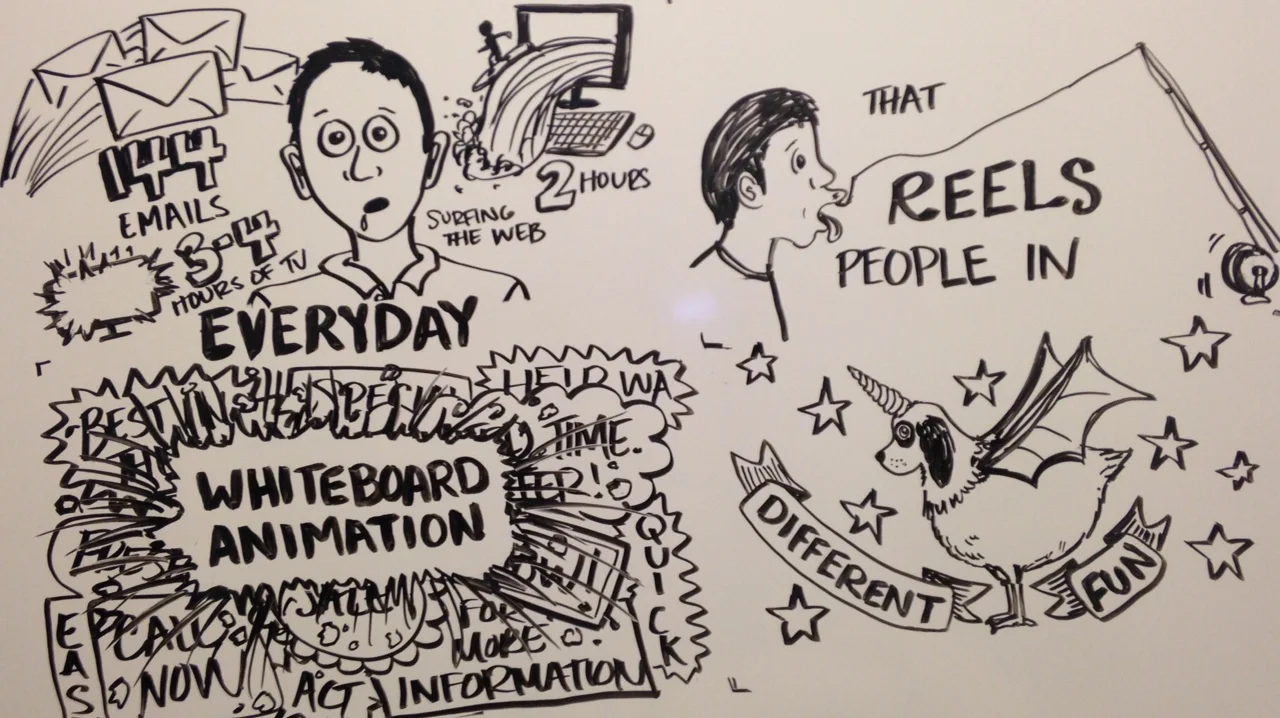 144
EMAILS
3-4
HOURS OF TV
SURFING
THE WEB
2 HOURS
EVERYDAY
THAT
REELS
PEOPLE IN
BEST
WHITEBOARD
ANIMATION
TIME.
QUICK
EAS
CALL
NOW
ACT
FOR
MORE
INFORMATION
DIFFERENT
FUN